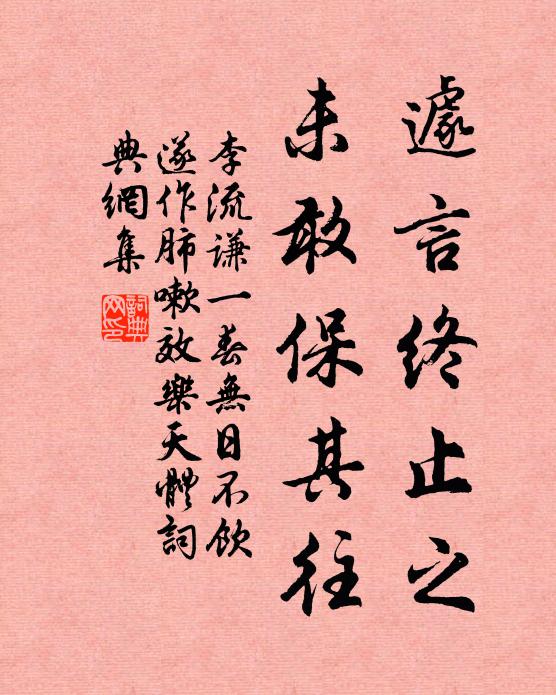 遽言終止之
未敢保其往
李流谦一春無日不飲
遂作肺嗽效樂天體詞
典網集
詞典网印